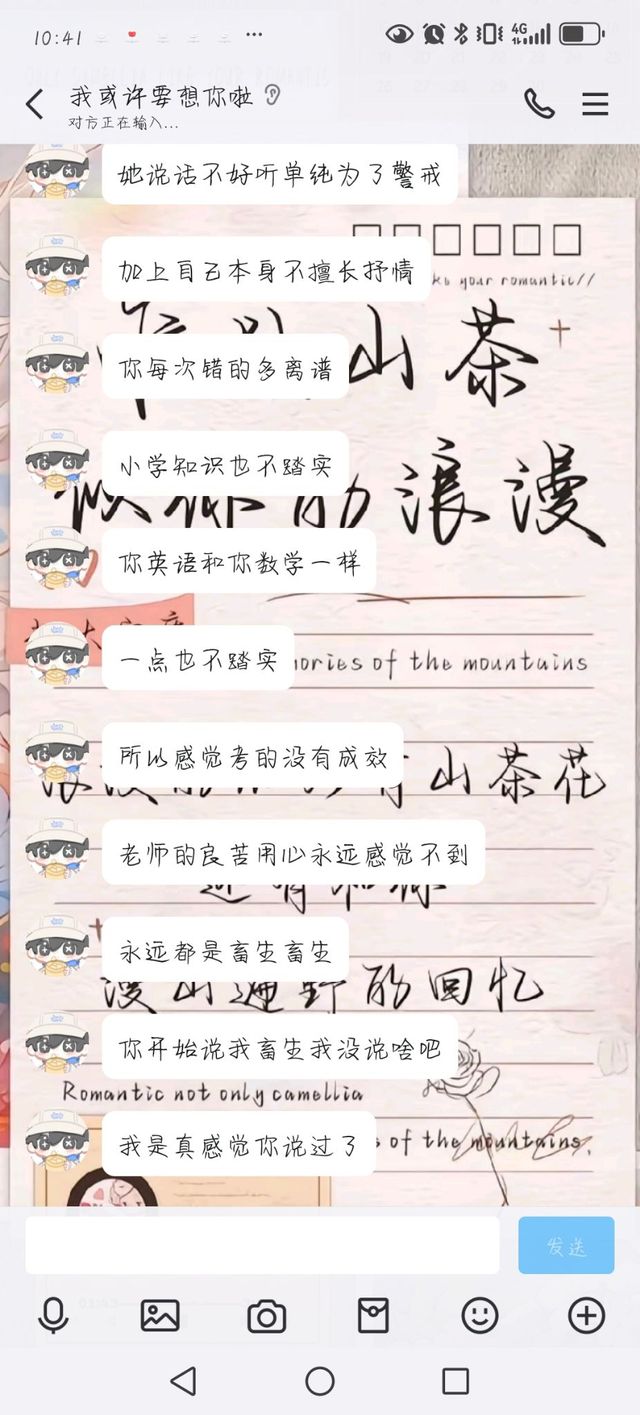 10:41
4G
我或许要想你啦
对方正在输入...
她说话不好听单纯为了警戒
加上自己本身不擅长抒情
your romantic//
山茶
你每次错的多离谱
小学知识也不踏实
浪漫
你英语和你数学一样
一点也不踏实
ories of the mountains
所以感觉考的没有成效
山茶花
老师的良苦用心永远感觉不到
永远都是畜生畜生
漫山遍野的回忆
你开始说我畜生我没说啥吧
Romantic not only camellia
我是真感觉你说过了
s of the mountains.
发送